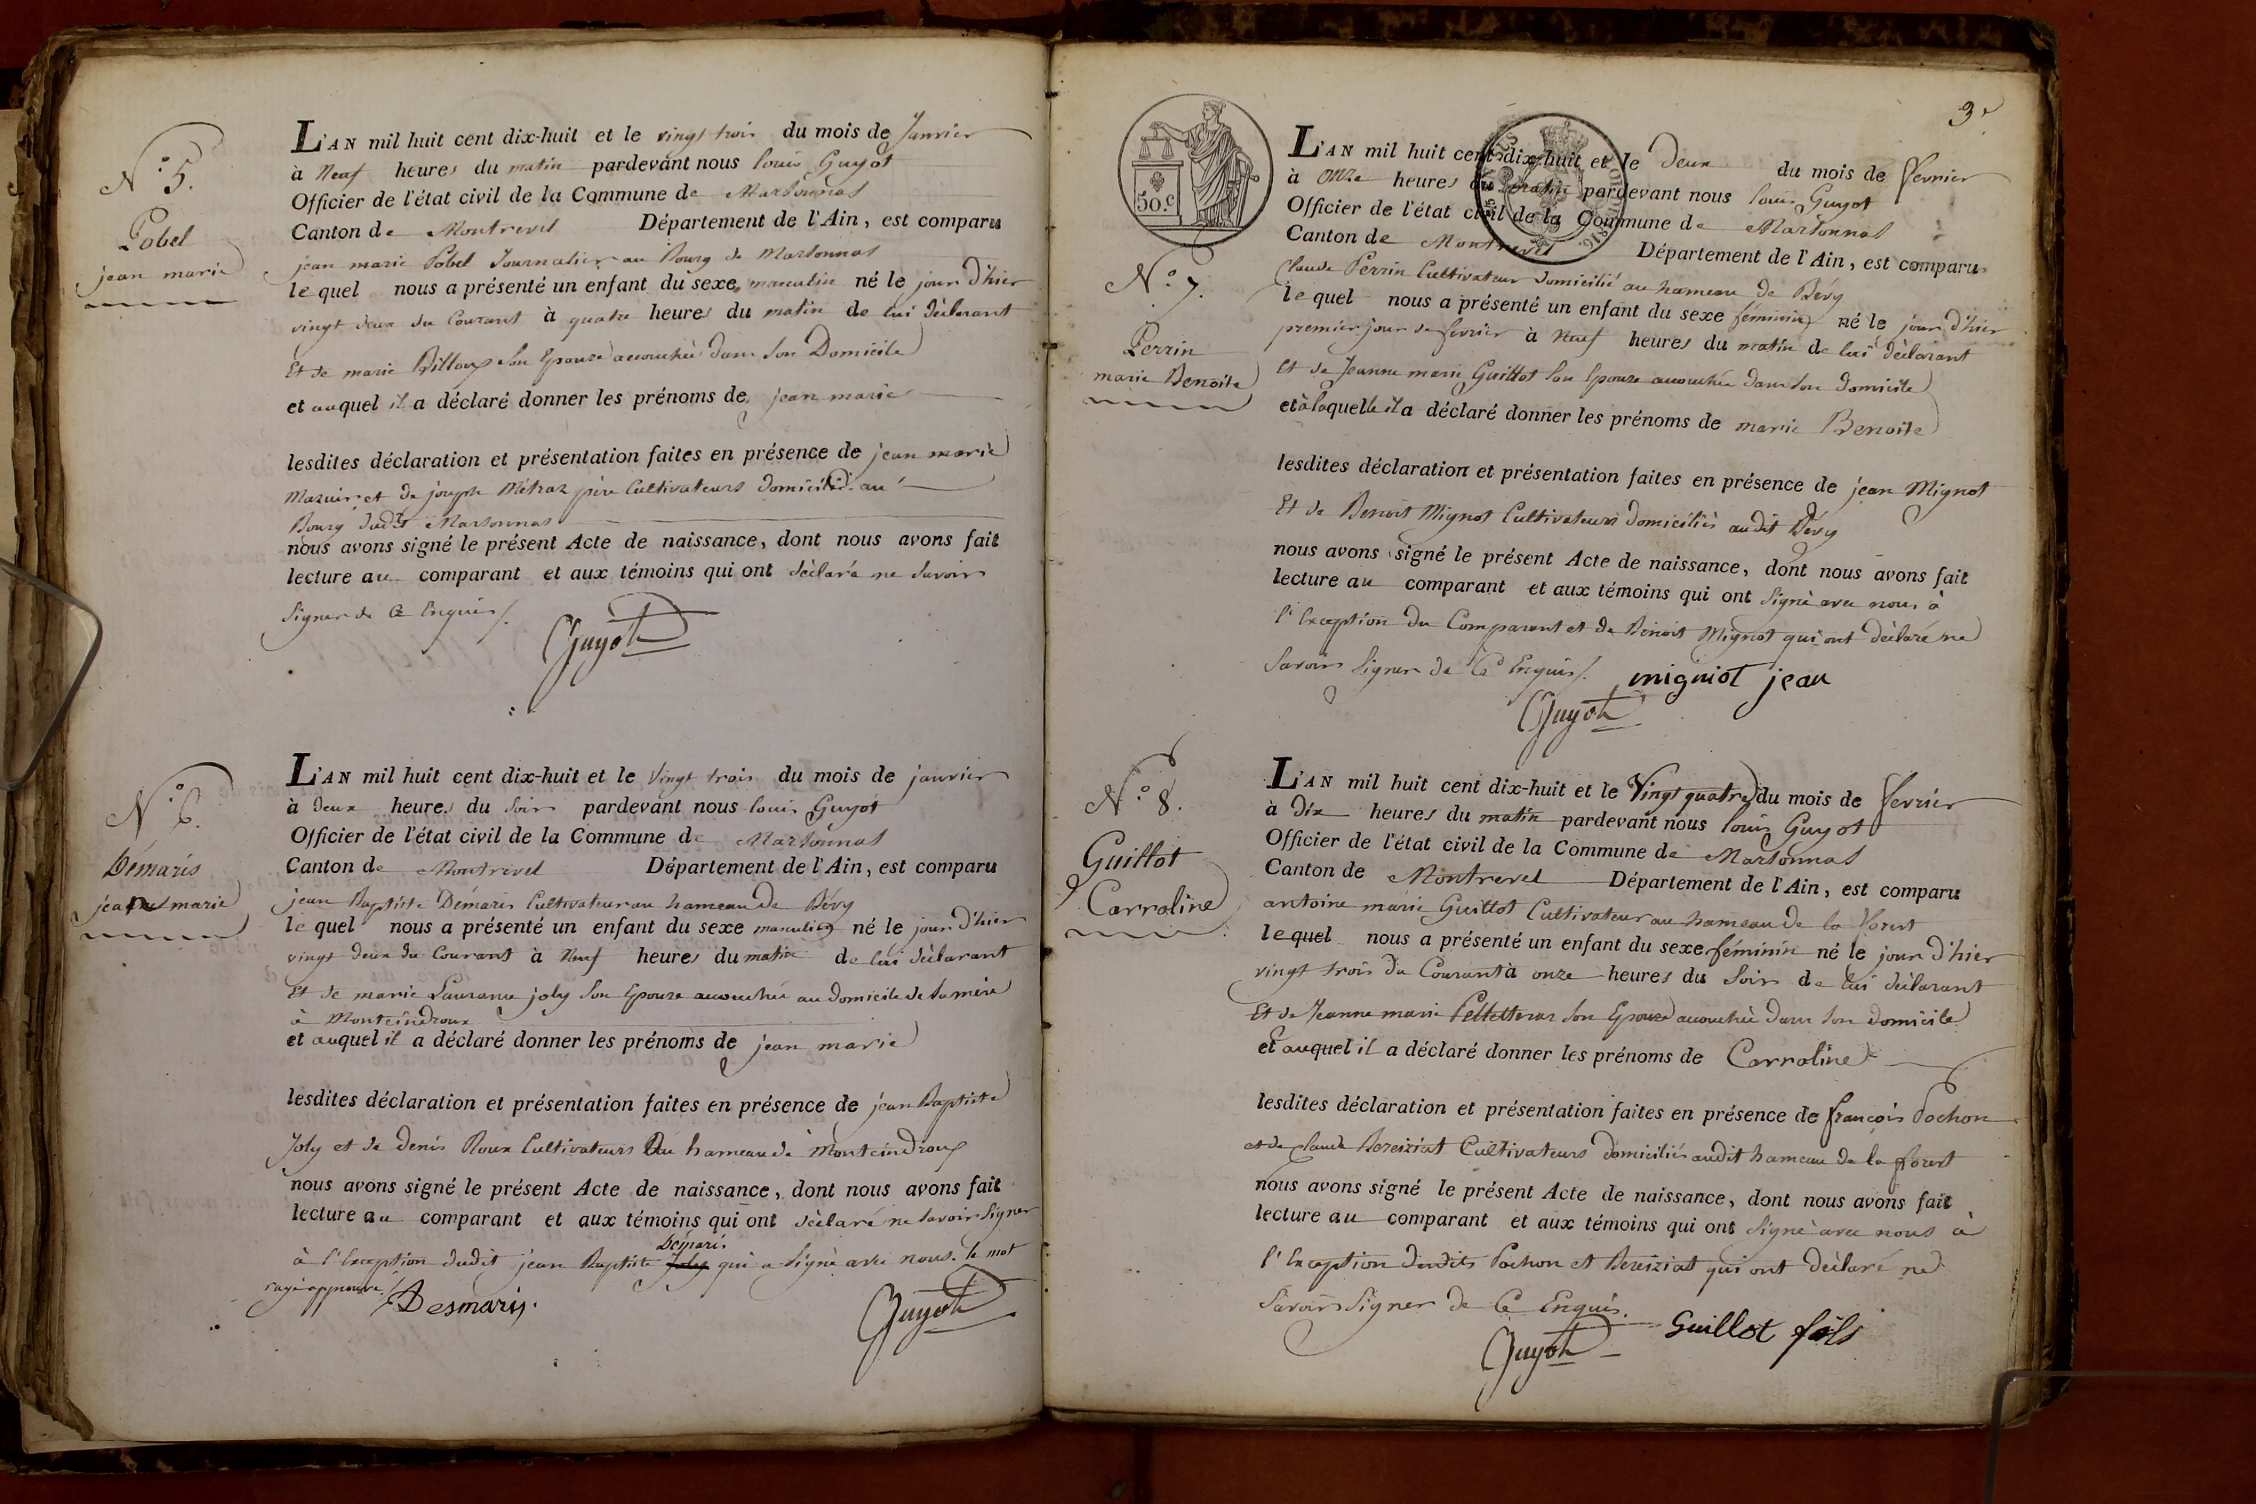 N.º 5.
Pobel
jean marie
L'AN mil huit cent dix-huit et le vingt trois du mois de Janvier
à Neuf heures du matin pardevant nous louis Guyot
Officier de l'état civil de la Commune de Marsonnas
Canton de Montrevel Département de l'Ain, est comparu
jean marie Pobel Journalier au Bourg de Marsonnas
lequel nous a présenté un enfant du sexe masculin né le jour d'hier
vingt deux du Courant à quatre heures du matin de lui déclarant
Et de marie Billoux son Epouze accouchée dans son Domicile
et auquel il a déclaré donner les prénoms de jean marie
lesdites déclaration et présentation faites en présence de jean marie
Mazuir et de joseph Métraz père Cultivateurs domiciliés au
Bourg dudit Marsonnas
nous avons signé le présent Acte de naissance, dont nous avons fait
lecture au comparant et aux témoins qui ont déclaré ne savoir
signer de Ce Enquis /.
Guyot
N.º 6.
Démaris
jean marie
L'AN mil huit cent dix-huit et le Vingt trois du mois de janvier
à deux heures du soir pardevant nous louis Guyot
Officier de l'état civil de la Commune de Marsonnas
Canton de Montrevel Département de l'Ain, est comparu
jean Baptiste Démaris Cultivateur au hameau de Bévy
lequel nous a présenté un enfant du sexe masculin né le jour d'hier
vingt deux du Courant à Neuf heures du matin de lui déclarant
Et de marie Laurance joly son Epouze accouchée au domicile de sa mère
à Monteindroux
et auquel il a déclaré donner les prénoms de jean marie
lesdites déclaration et présentation faites en présence de jean Baptiste
Joly et de denis Roux Cultivateurs Du hameau de Monteindroux
nous avons signé le présent Acte de naissance, dont nous avons fait
lecture au comparant et aux témoins qui ont déclaré ne savoir signer
Démaris
à l'Exception dudit jean Baptiste Joly qui a signé avec nous. le mot
rayé approuvé /.
Desmaris.
Guyot
3e
50.c
1816.
N.º 7.
Perrin
marie Benoite
L'AN mil huit cent dix-huit et le deux du mois de fevrier
à onze heures du matin pardevant nous louis Guyot
Officier de l'état civil de la Commune de Marsonnas
Canton de Montrevel Département de l'Ain, est comparu
Claude Perrin Cultivateur domicilié au hameau de Bévy
lequel nous a présenté un enfant du sexe féminin né le jour d'hier
premier jour de fevrier à Neuf heures du matin de lui déclarant
Et de Jeanne marie Guillot son Epouze accouchée dans son domicile
et à laquelle il a déclaré donner les prénoms de marie Benoite
lesdites déclaration et présentation faites en présence de jean Mignot
Et de Benoit Mignot Cultivateurs domiciliés audit Bévy
nous avons signé le présent Acte de naissance, dont nous avons fait
lecture au comparant et aux témoins qui ont signé avec nous à
l'Exception du Comparant et de Benoit Mignot qui ont déclaré ne
savoir signer de Ce Enquis /.
migniot jean
Guyot
N.º 8.
Guillot
Carroline
L'AN mil huit cent dix-huit et le Vingt quatre du mois de fevrier
à dix heures du matin pardevant nous louis Guyot
Officier de l'état civil de la Commune de Marsonnas
Canton de Montrevel Département de l'Ain, est comparu
antoine marie Guillot Cultivateur au hameau de la forest
lequel nous a présenté un enfant du sexe féminin né le jour d'hier
vingt trois du Courant à onze heures du soir de lui déclarant
Et de Jeanne marie son Epouze accouchée dans son domicile
et auquel il a déclaré donner les prénoms de Carroline
lesdites déclaration et présentation faites en présence de françois Pochon
et de claude Bereiziat Cultivateurs domiciliés audit hameau de la forest
nous avons signé le présent Acte de naissance, dont nous avons fait
lecture au comparant et aux témoins qui ont signé avec nous à
l'Exception desdits Pochon et Bereiziat qui ont déclaré ne
savoir signer de Ce Enquis.
Guillot fils
Guyot